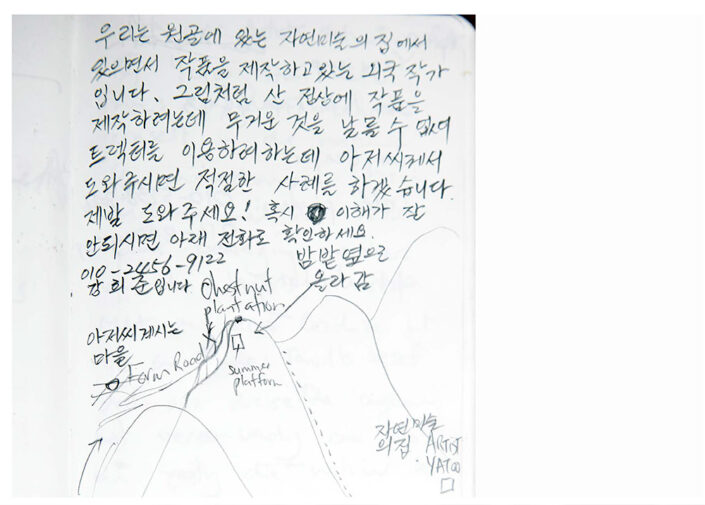 우리는 원골에 있는 자연미술의 집에서
있으면서 작품을 제작하고있는 외국작가
입니다. 그림처럼 산 정상에 작품을
제작하려는데 무거운 것을 날를 수 없어
트렉터를 이용하려하는데 아저씨께서
도와주시면 적절한 사례를 하겠습니다.
제발 도와주세요! 혹시 이해가 잘
안되시면 아래 전화로 확인하세요.
010-2456-9122
강희준입니다
밤밭옆으로
올라감
Chestnut
plantation
아저씨계시는
마을
Farm Road
summer
platform
자연미술
의집
ARTIST
YATOO